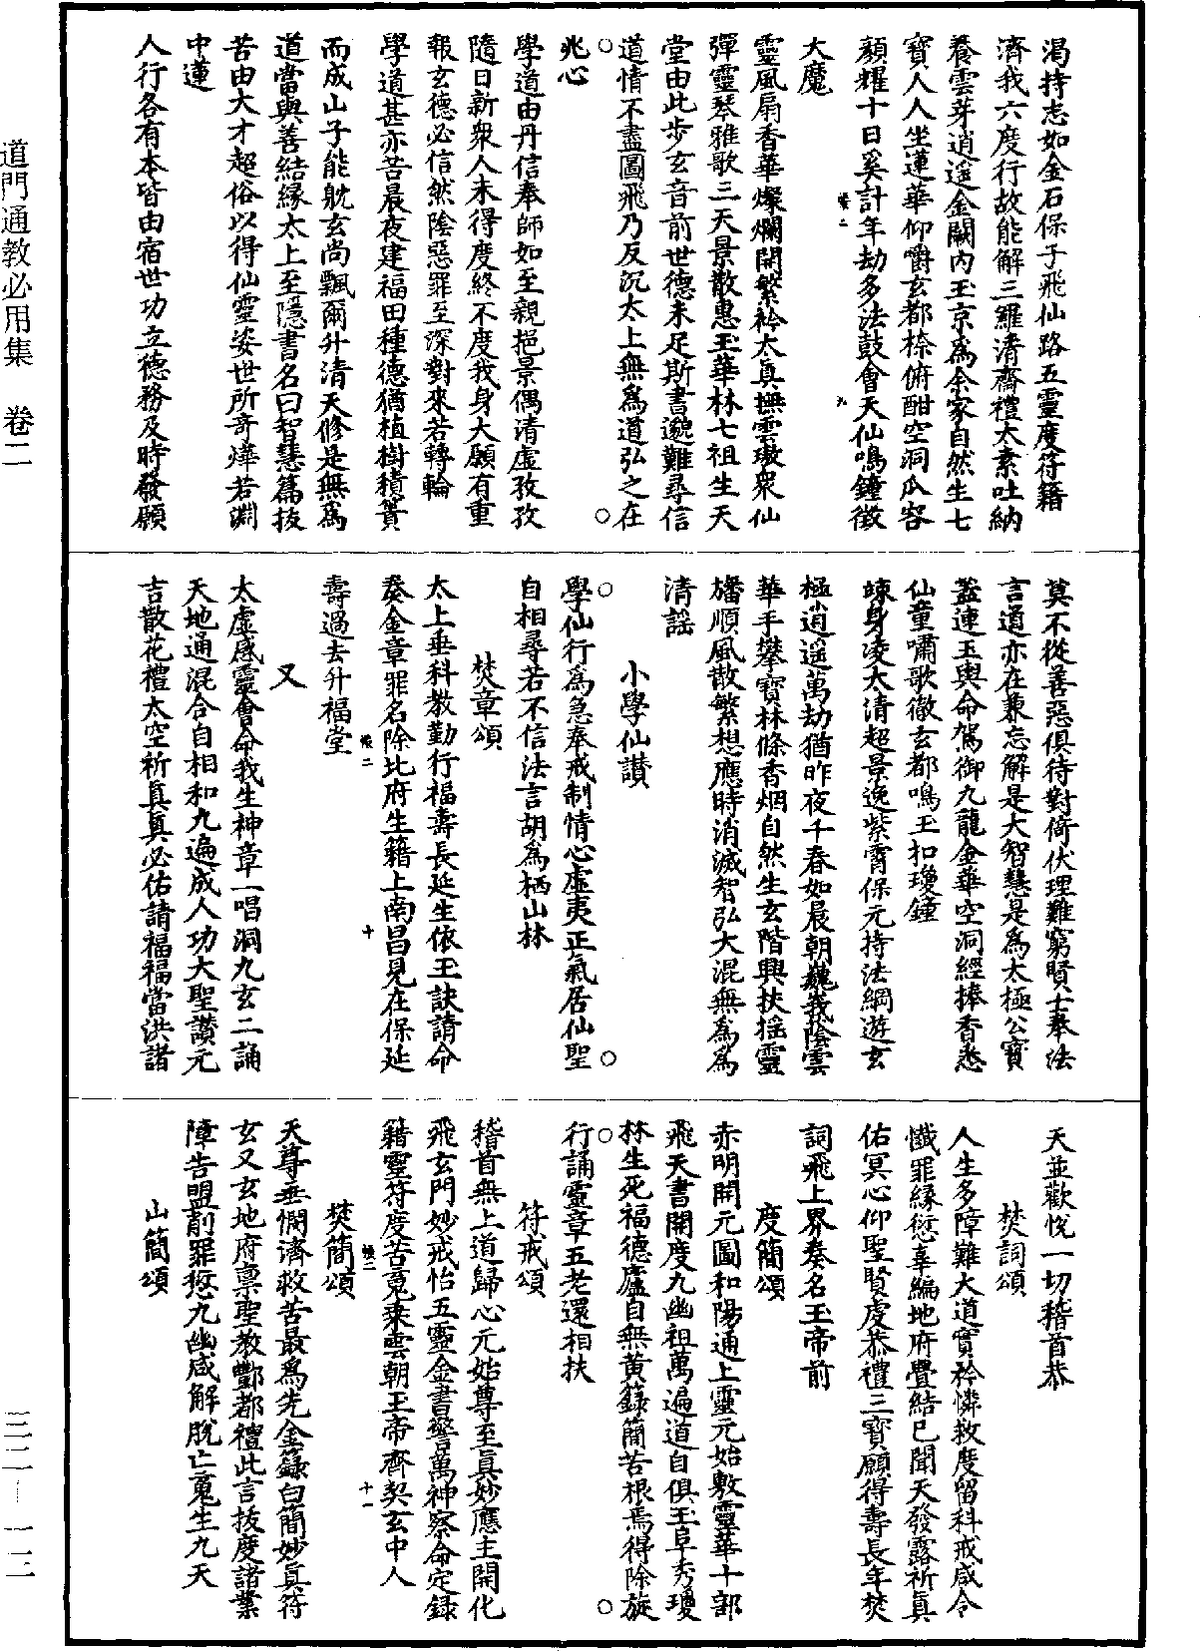 渴持志如金石保子飛仙路五靈度符籍
濟我六度行故能解三羅清齋禮太素吐納
養雲芽逍遥金闕内玉京爲余家自然生七
寶人人坐蓮華仰嚼玄都㮈俯酣空洞瓜容
顔耀十日奚計年劫多法鼓會天仙鳴鐘徵
大魔
靈風扇香華燦爛開繁衿太真撫雲璈衆仙
彈靈琴雅歌三天景散惠玉華林七祖生天
堂由此步玄音前世德未足斯書邈難尋信
道情不盡圖飛乃反沉太上無爲道弘之在
兆心
學道由丹信奉師如至親挹景偶清虛孜孜
隨日新衆人未得度終不度我身大願有重
報玄德必信然陰惡罪至深對來若轉輪
學道甚亦苦晨夜建福田種德猶植樹積簣
而成山子能躭玄尚飄爾升清天修是無爲
道當與善結縁太上至隱書名曰智慧篇拔
苦由大才超俗以得仙靈姿世所奇燁若淵
中蓮
人行各有本皆由宿世功立德務及時發願
莫不從善惡俱待對倚伏理難窮賢士奉法
言道亦在兼忘解是大智慧是爲太極公寳
蓋連玉輿命駕御九龍金華空洞經捧香悉
仙童嘯歌徹玄都鳴玉扣瓊鐘
竦身凌太清超景逸紫霄保元持法綱遊玄
極逍遥萬劫猶昨夜千春如晨朝巍峩陰雲
華手攀寶林條香烟自然生玄階興扶摇靈
旛順風散繁想應時消滅智弘大混無爲爲
清謡
小學仙讃
學仙行爲急奉戒制情心虛夷正氣居仙聖
自相尋若不信法言胡爲栖山林
焚章頌
太上垂科教勤行福壽長延生依玉訣請命
奏金章罪名除北府生籍上南昌見在保延
壽過去升福堂
又
太虛感靈會命我生神章一唱洞九玄二誦
天地通混合自相和九遍成人功大聖讃元
吉散花禮太空祈真真必佑請福福當洪諸
天並歡悅一切稽首恭
焚詞頌
人生多障難大道寳衿憐救度留科戒咸令
懺罪縁愆辜編地府疊結已聞天發露祈真
佑冥心仰聖賢虔恭禮三寶願得壽長年焚
詞飛上界奏名玉帝前
度簡頌
赤明開元圖和陽通上靈元始敷靈華十部
飛天書開度九幽祖萬遍道自俱玉阜秀瓊
林生死福德廬自無黄籙簡苦根焉得除旋
行誦靈章五老還相扶
符戒頌
稽首無上道歸心元始尊至真妙應主開化
飛玄門妙戒怡五靈金書警萬神察命定録
籍靈符度苦䰟乘雲朝玉帝齊契玄中人
焚簡頌
天尊垂憫濟救苦最爲先金籙白簡妙真符
玄又玄地府禀聖教酆都禮此言拔度諸業
障告盟削罪愆九幽咸解脱亡䰟生九天
山簡頌
道門通教必用集 卷二
三二—一二